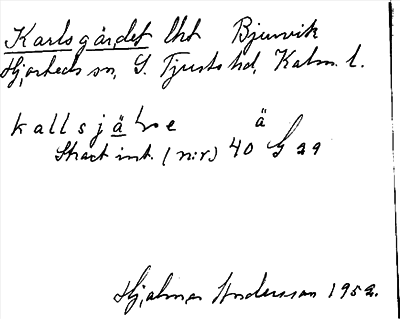 Karlsgärdet lht Bjurvik
Hjorteds sn, S. Tjusts hd, Kalm. l.
ä
Skact int. (nr.) 40 G 29
Hjalmar Andersson 1952.